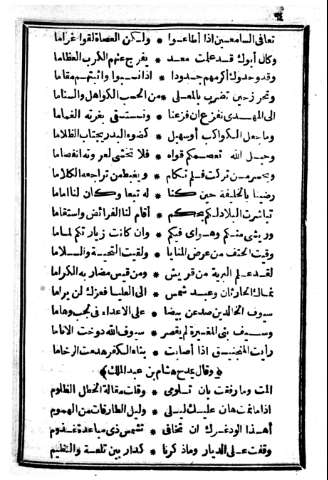 تعافى السامعين اذا أطاعوا * ولكن العصاة لقوا غراما
وكان أبوك قد علمت معد * يفرج عنهم الكرب العظاما
وقد وجدوك أكرمهم جدودا * اذا نسبوا وأثبتهم مقاما
وتحرز حين تضرب بالمعلى * من الحسب الكواهل والسناما
الى المهدى نفزع ان فزعنا * ونستسقى بغرته الغماما
وما جعل الكواكب أو سهيل * كضوء البدر يجتاب الظلاما
وحبل الله تعصمكم قواه * فلا تخشى لعروته انفصاما
ويحسر من تركت فلم تكلم * ويغبط من تراجعه الكلاما
رضينا بالخليفة حين كنا * له تبعا وكان لنا اماما
تباشرت البلاد لكم بحكم * أقام لنا الفرائض واستقاما
وريشى منكم وهواى فيكم * وان كانت زيارتكم لماما
وقيت الحتف من عرض المنايا * ولقيت التحية والسلاما
لقد علم البرية من قريش * ومن قيس مضاربه الكراما
نماك الحارثان وعبد شمس * الى العليا فعزك لن يراما
سيوف الخالدين صدعن بيضا * على الاعداء فى لجب وهاما
وسيف بنى المغيرة لم يقصر * سيوف الله دوخت الاناما
رأيت المنجنيق اذا أصابت * بناء الكفر هدمت الرخاما
﴿وقال يمدح هشام بن عبد الملك﴾
ألمت وما رفقت بأن تلومى * وقلت مقالة الخطل الظلوم
اذا ما نمت هان عليك ليلى * وليل الطارقات من الهموم
أهذا الود غرك أن تخافى * تشمس ذى مباعدة عذوم
وقفت على الديار وما ذكرنا * كدار بين تلعة والنظيم